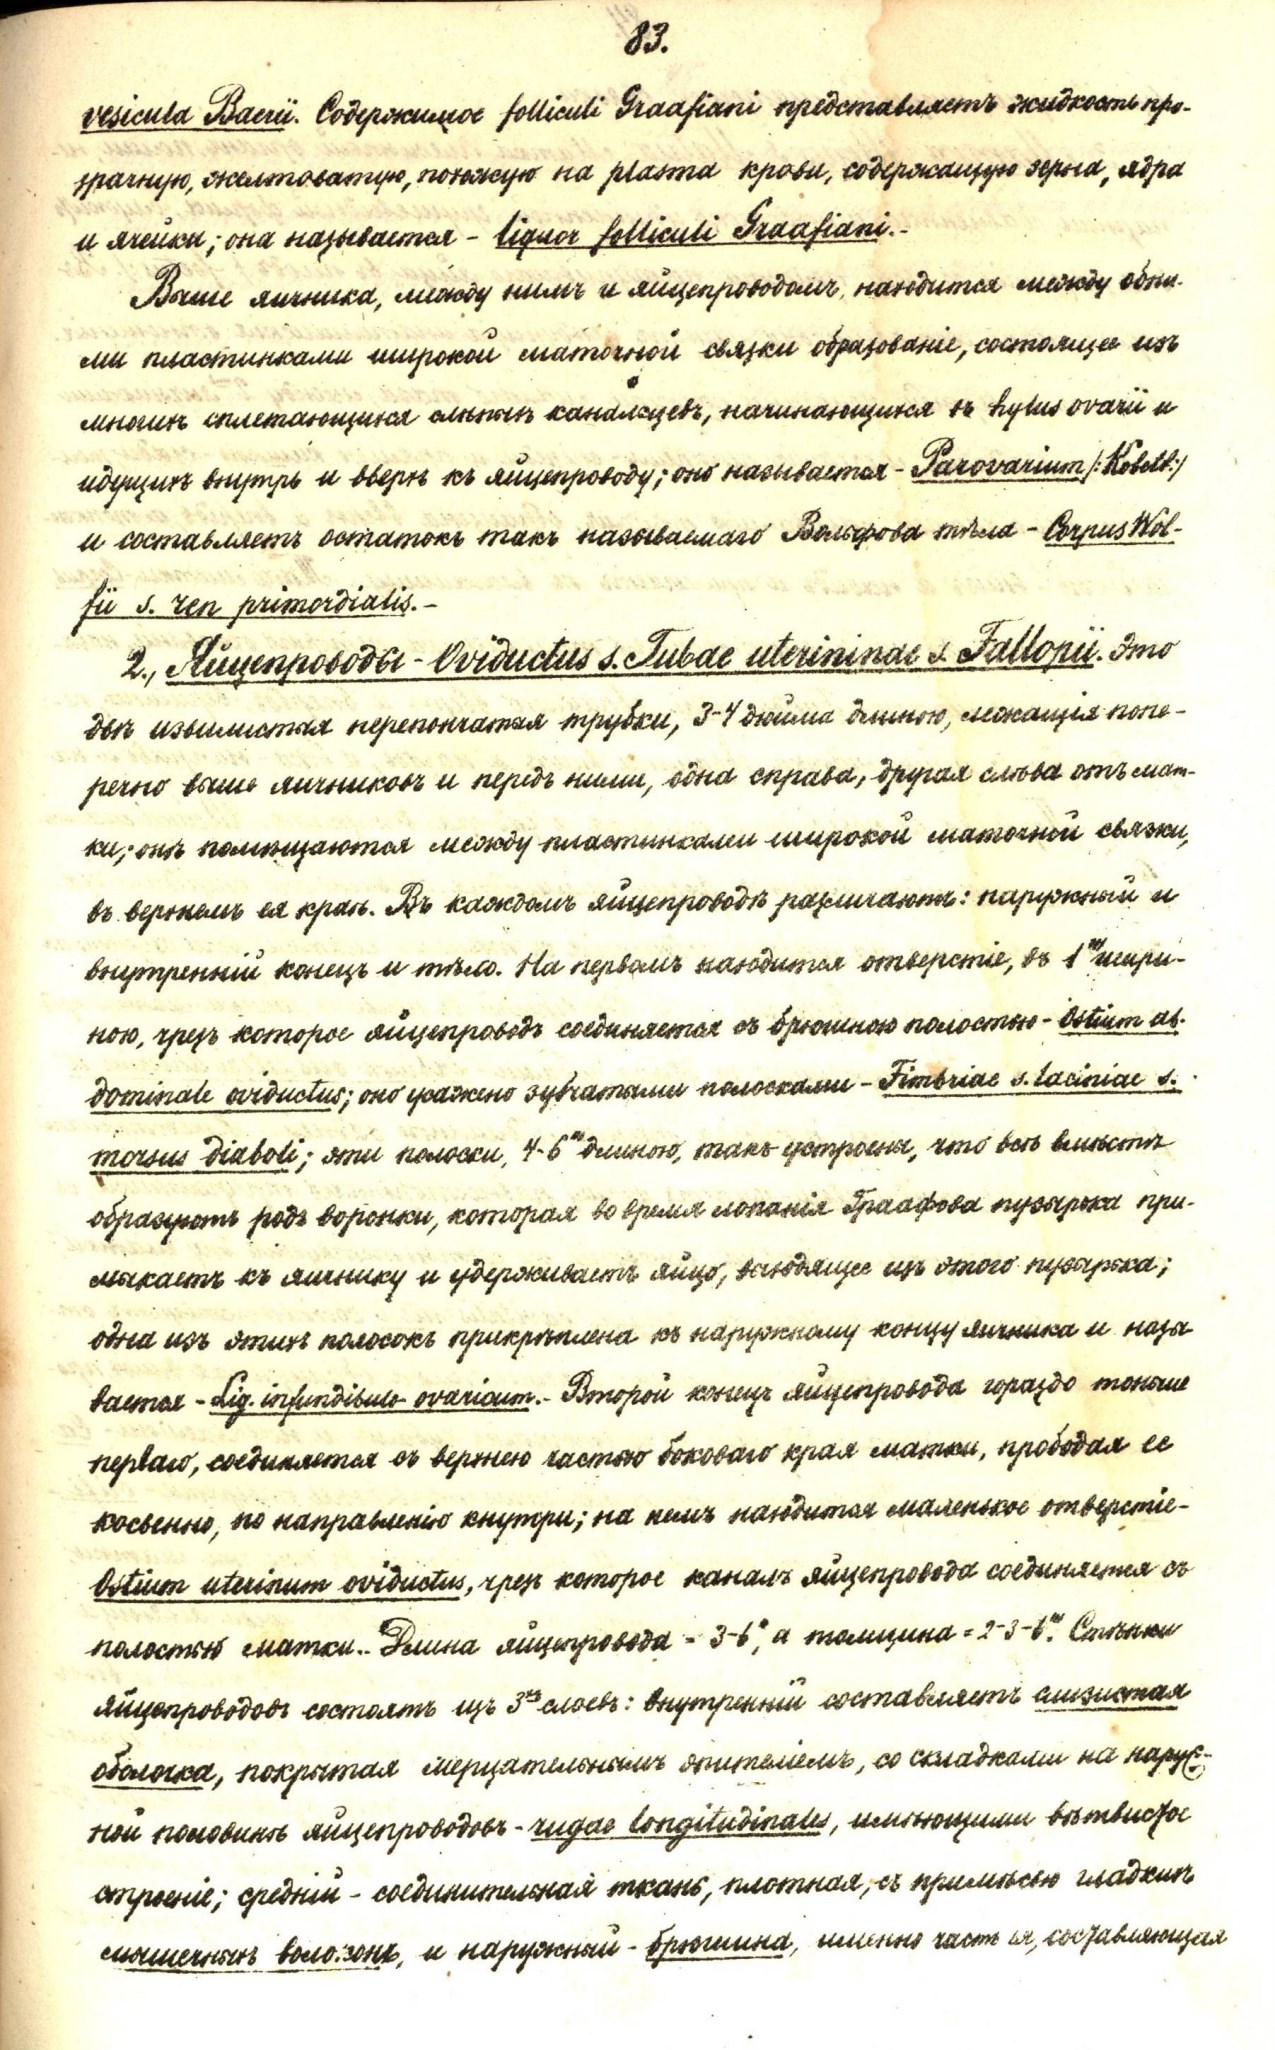 83.
vesicula Baerii. Содержимое folliculi Graafiani представляетъ жидкость про-
зрачную, желтоватую, похожую на plasma крови, содержащую зерна, ядра
и ячейки; она называется - liquor folliculi Graafiani.-
Выше яичника, между нимъ и яйцепроводомъ, находится между обѣи-
ми пластинками широкой маточной связки образованіе, состоящее изъ
многихъ сплетающихся слѣпыхъ канальцевъ, начинающихся въ hylus ovarii и
идущихъ внутрь и вверхъ къ яйцепроводу; оно называется - Parovarium /:Kobelt:/
и составляетъ остатокъ такъ называемаго Вольфова тѣла - Corpus Wol-
fii s. ren primordialis.-
2., Яйцепроводы - Oviductus s. Tubae uterininae s. Fallopii. Это
двѣ извилистыя перепончатыя трубки, 3-4 дюйма длиною, лежащія попе-
речно выше яичниковъ и передъ ними, одна справа, другая слѣва отъ мат-
ки; онѣ помѣщаются между пластинками широкой маточной связки,
въ верхнемъ ея краѣ. Въ каждомъ яйцепроводѣ различаютъ: наружный и
внутренній конецъ и тѣло. На первомъ находится отверстіе, въ 1''' шири-
ною, чрезъ которое яйцепроводъ соединяется съ брюшною полостью - Ostium ab-
dominale oviductus; оно усажено зубчатыми полосками - Fimbriae s. laciniae s.
morsus diaboli; эти полоски, 4-6''' длиною, такъ устроены, что всѣ вмѣстѣ
образуютъ родъ воронки, которая во время лопанія Граафова пузырька при-
мыкаетъ къ яичнику и удерживаетъ яйцо, выходящее изъ этого пузырька;
одна изъ этихъ полосокъ прикрѣплена къ наружному концу яичника и назы
вается - Lig. infundibulo-ovaricum.- Второй конецъ яйцепровода гораздо тоньше
перваго, соединяется съ верхнею частью боковаго края матки, прободая ее
косвенно, по направленію кнутри; на немъ находится маленькое отверстіе-
Ostium uterinum oviductus, чрезъ которое каналъ яйцепровода соединяется съ
полостью матки.. Длина яйцепровода = 3-6", а толщина = 2-3-6'''. Стѣнки
яйцепроводовъ состоятъ изъ 3хъ слоевъ: внутренній составляетъ слизистая
оболочка, покрытая мерцательнымъ эпителіемъ, со складками на наруж-
ной половинѣ яйцепроводовъ - rugae longitudinales, имѣющими вѣтвистое
строеніе; средній - соединительная ткань, плотная, съ примѣсью гладкихъ
мышечныхъ волоконъ, и наружный - брюшина, именно часть ея, составляющая